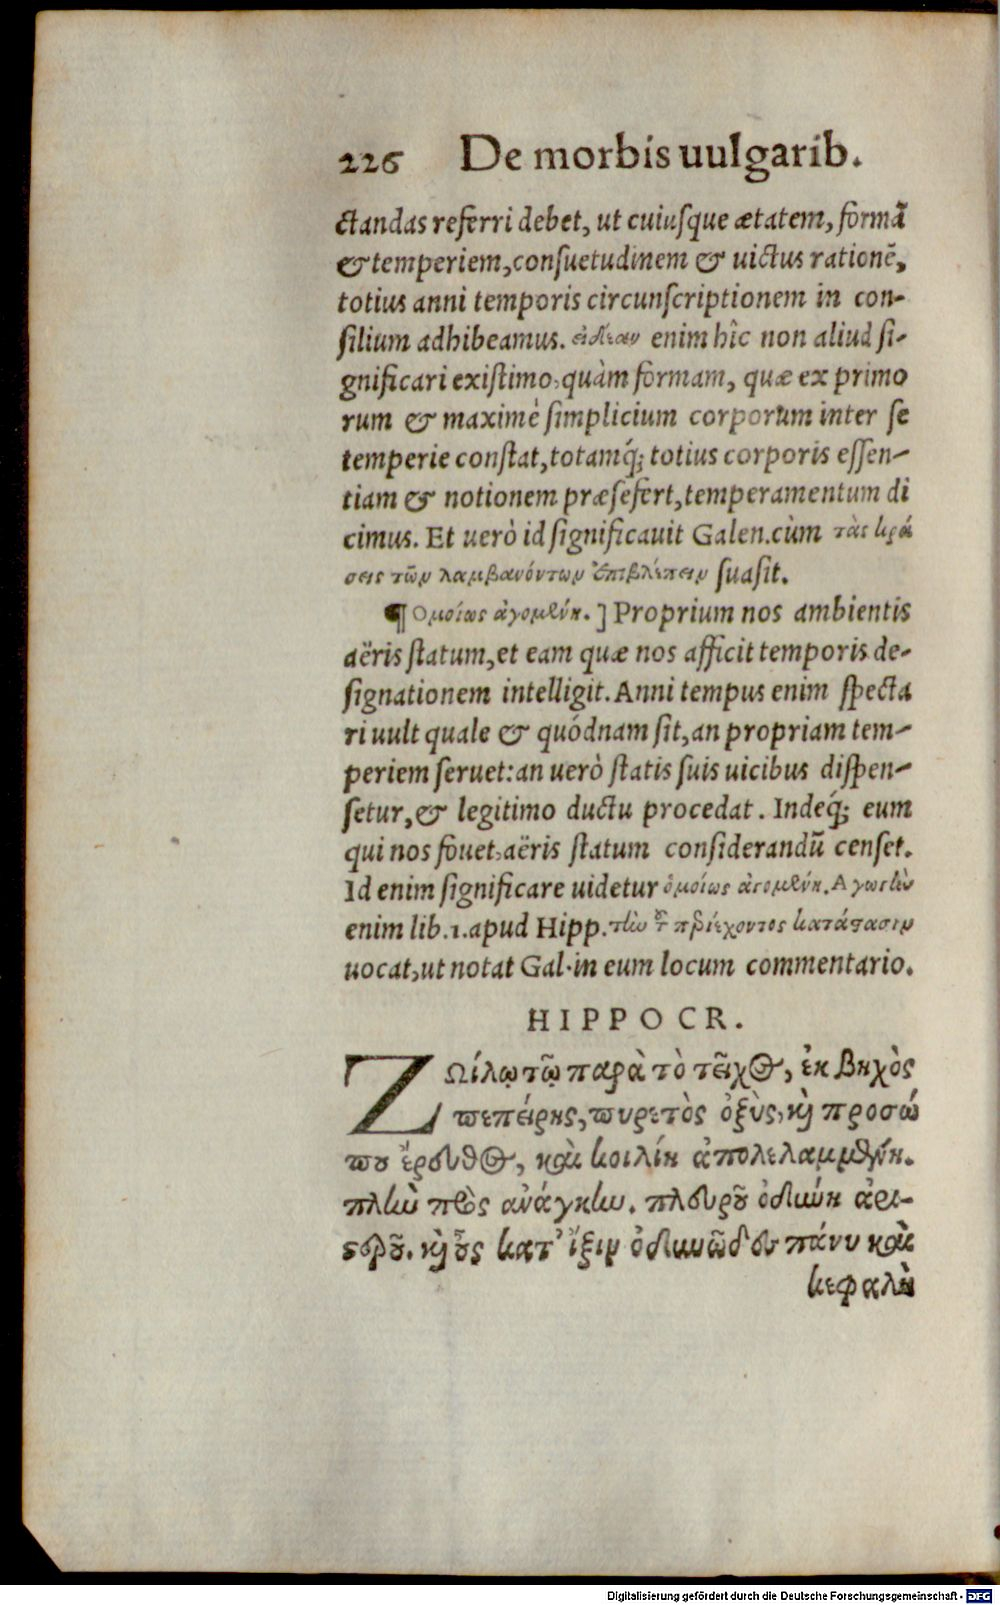 226 De morbis uulgarib.
ctandas referri debet, ut cuiusque ætatem, formā
& temperiem, consuetudinem & uictus rationē,
totius anni temporis circunscriptionem in con-
silium adhibeamus. εἰδέαν enim hîc non aliud si-
gnificari existimo, quàm formam, quæ ex primo
rum & maximè simplicium corporum inter se
temperie constat, totamq́; totius corporis essen-
tiam & notionem præsefert, temperamentum di
cimus. Et uerò id significauit Galen. cùm τὰς κρά
σεις τῶν λαμβανόντων ἐπιβλέπειν suasit.
¶ Ομοίως ἀγομένη. ] Proprium nos ambientis
aëris statum, et eam quæ nos afficit temporis de-
signationem intelligit. Anni tempus enim specta
ri uult quale & quódnam sit, an propriam tem-
periem seruet: an uerò statis suis uicibus dispen-
setur, & legitimo ductu procedat. Indeq́; eum
qui nos fouet, aëris statum considerandū censet.
Id enim significare uidetur ὁμοίως ἀγομένη. Αγωγὴν
enim lib. 1. apud Hipp. τὴν τοῦ περιέχοντος κατάστασιν
uocat, ut notat Gal. in eum locum commentario.
HIPPOCR.
ΖΩίλῳ τῷ παρὰ τὸ τεῖχος, ἐκ βηχὸς
πεπείρης, πυρετὸς ὀξὺς, καὶ προσώ
που ἔρευθος, καὶ κοιλίη ἀπολελαμμένη.
πλὴν πρὸς ἀνάγκην. πλευροῦ ὀδύνη ἀρι-
στεροῦ. καὶ οὖς κατ' ἴξιν ὀδυνῶδες πάνυ καὶ
κεφαλὴ
Digitalisierung gefördert durch die Deutsche Forschungsgemeinschaft - DFG